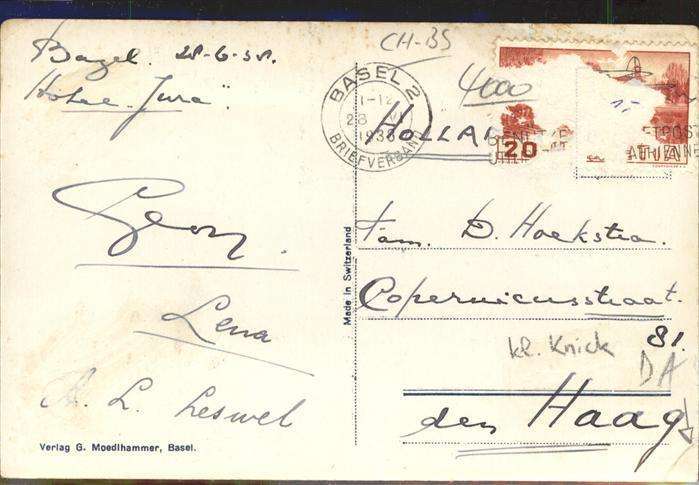 Bazel. 28-6-38.
Hotel "Jura"
Geor.
Lena
A. L. Leswel
Verlag G. Moedlhammer, Basel.
Made in Switzerland
CH-BS
4000
BASEL 2
1938
BRIEFVERSAND
20
1.-
HOLLAND
Fam. D. Hoekstra.
Copernicusstraat.
81.
kl. Knick
DA
den Haag